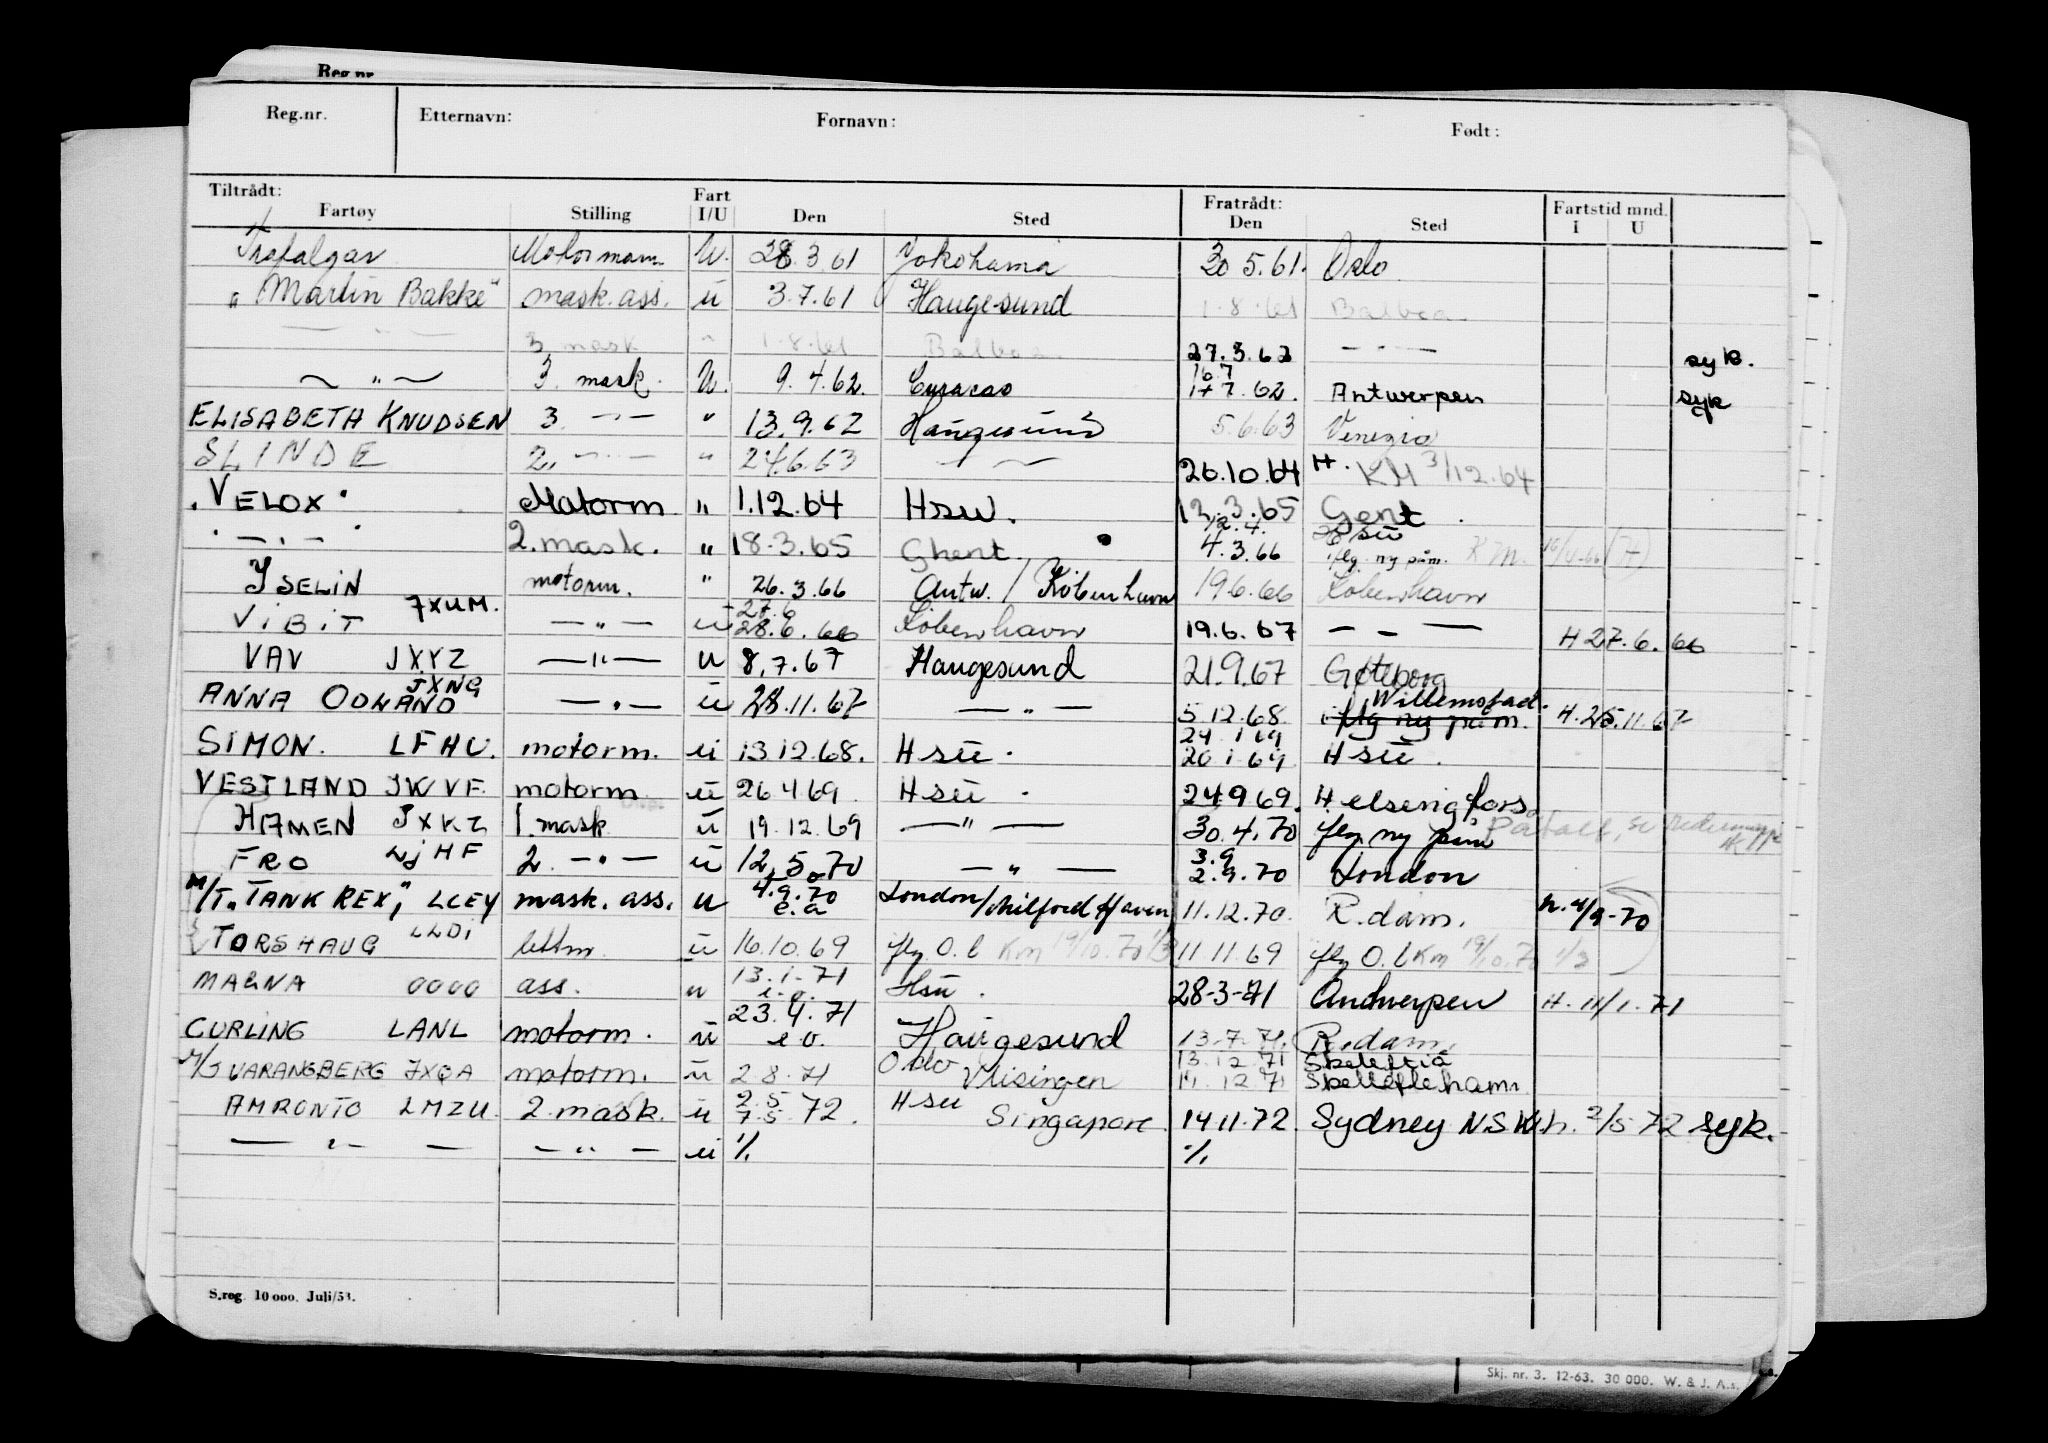 Reg.nr
Reg.nr. Etternavn: Fornavn: Født:
Tiltrådt: Fartøy Stilling Fart I/U Den Sted Fratrådt: Den Sted Fartstid mnd. I U
Trafalgar Motormann U. 28.3 61 Yokohama 30 5.61. Oslo
"Martin Bakke" mask. ass. ü 3.7.61 Haugesund 1.8.61 Balboa
— " — 3 mask " 1.8.61 Balboa 27.3.62 — " — syk.
— " — 3. mask. U. 9.4.62. Curacao 16.7 17 7.62. Antwerpen syk
ELISABETH KNUDSEN 3. — " — " 13.9.62 Haugesund 5.6.63 Venezia
SLINDE 2. — " — " 24.6.63 — " — 26.10.64 H. KM 3/12.64
"VELOX" Motorm " 1.12.64 Hsu. 12.3.65 Gent
" — " — " 2. mask. " 18.3.65 Ghent. 12.4. 4.3.66 Hsü iflg. ny påm. KM.
YSELIN motorm. " 26.3.66 Antw. / Köbenhavn 19.6.66 Köbenhavn
ViBiT JXUM. — " — ü 27.6 28.6.66 Köbenhavn 19.6.67 — " — H 27.6.66
VAV JXYZ — " — u 8.7.67 Haugesund 21.9.67 Gøteborg
ANNA ODLAND JXNG — " — ü 28.11.67 — " — 5.12.68. iflg ny påm. Willemstad. H. 25.11.67
SIMON. LFHU. motorm. ü 13.12.68. Hsü. 24.1 69 20 1.69 Hsü.
VESTLAND JWVF. motorm ü 26.4 69. Hsü. 24.9 69. Helsingfors
HAMEN JXKZ 1. mask ü 19.12.69 — " — 30.4.70 iflg ny påm
FRO LJHF 2. — " — ü 12.5.70 — " — 3.9 2.9.70 London
M/T "TANK REX", LCEY mask. ass. u 4.9.70 e.a London/Milford Haven 11.12.70. R.dam. h. 4/9-70
TORSHAUG LLDI lettm. ü 16.10.69 iflg O.l KM 19/10.70 1/3 11.11.69 iflg O.l KM 19/10.70 1/3
MAGNA OOOO ass. u 13.1.71 e.o. Hsü. 28-3-71 Andwerpen H. 11/1.71
CURLING LANL motorm. ü 23.4.71 e.o. Haugesund 13.7.71. R.dam.
M/S VARANGBERG JXQA motorm. ü 2.8.71 Oslo Vlisingen 13.12.71 14.12.71 Skeleftiå Skelleftehamn
AMRONTO LMZU. 2. mask. ü 2.5 7.5.72. Hsu Singapore. 14.11.72. Sydney N.S.W. h. 2/5 72 syk.
— " — — " — ü % %
S.reg. 10 000. Juli/53.
Skj. nr. 3. 12-63. 30 000. W. & J. A.s.